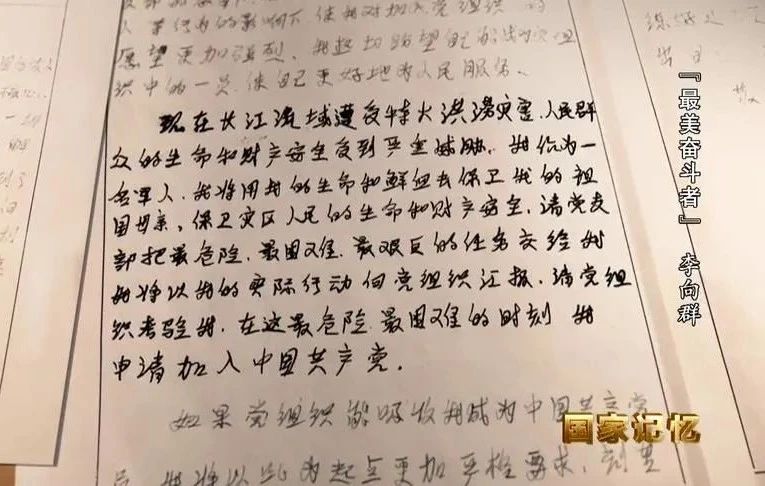 愿望更加强烈。我超切盼望自己能成为党组
织中的一员,使自己更好地为人民服务。
现在长江流域遭受特大洪涝灾害,人民群
众的生命和财产安全受到严重威胁。我作为一
名军人,我将用我的生命和鲜血去保卫我的祖
国母亲,保卫灾区人民的生命和财产安全,请党支
部把最危险、最困难、最艰巨的任务交给我
我将以我的实际行动向党组织汇报,请党组
织考验我,在这最危险最困难的时刻 我
申请加入中国共产党。
如果党组织能吸收我成为中国共产党
员 我将以此为起点更加严格要求,
『最美奋斗者』 李向群
国家记忆